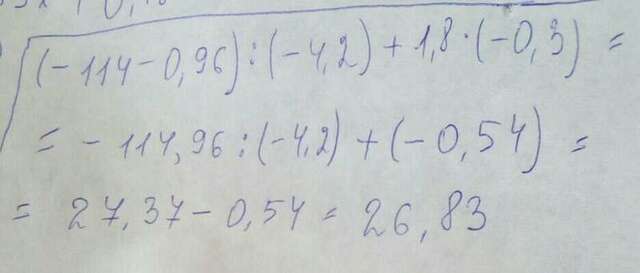 (-114-0,96):(-4,2)+1,8·(-0,3)=
=-114,96:(-4,2)+(-0,54)=
=27,37-0,54=26,83